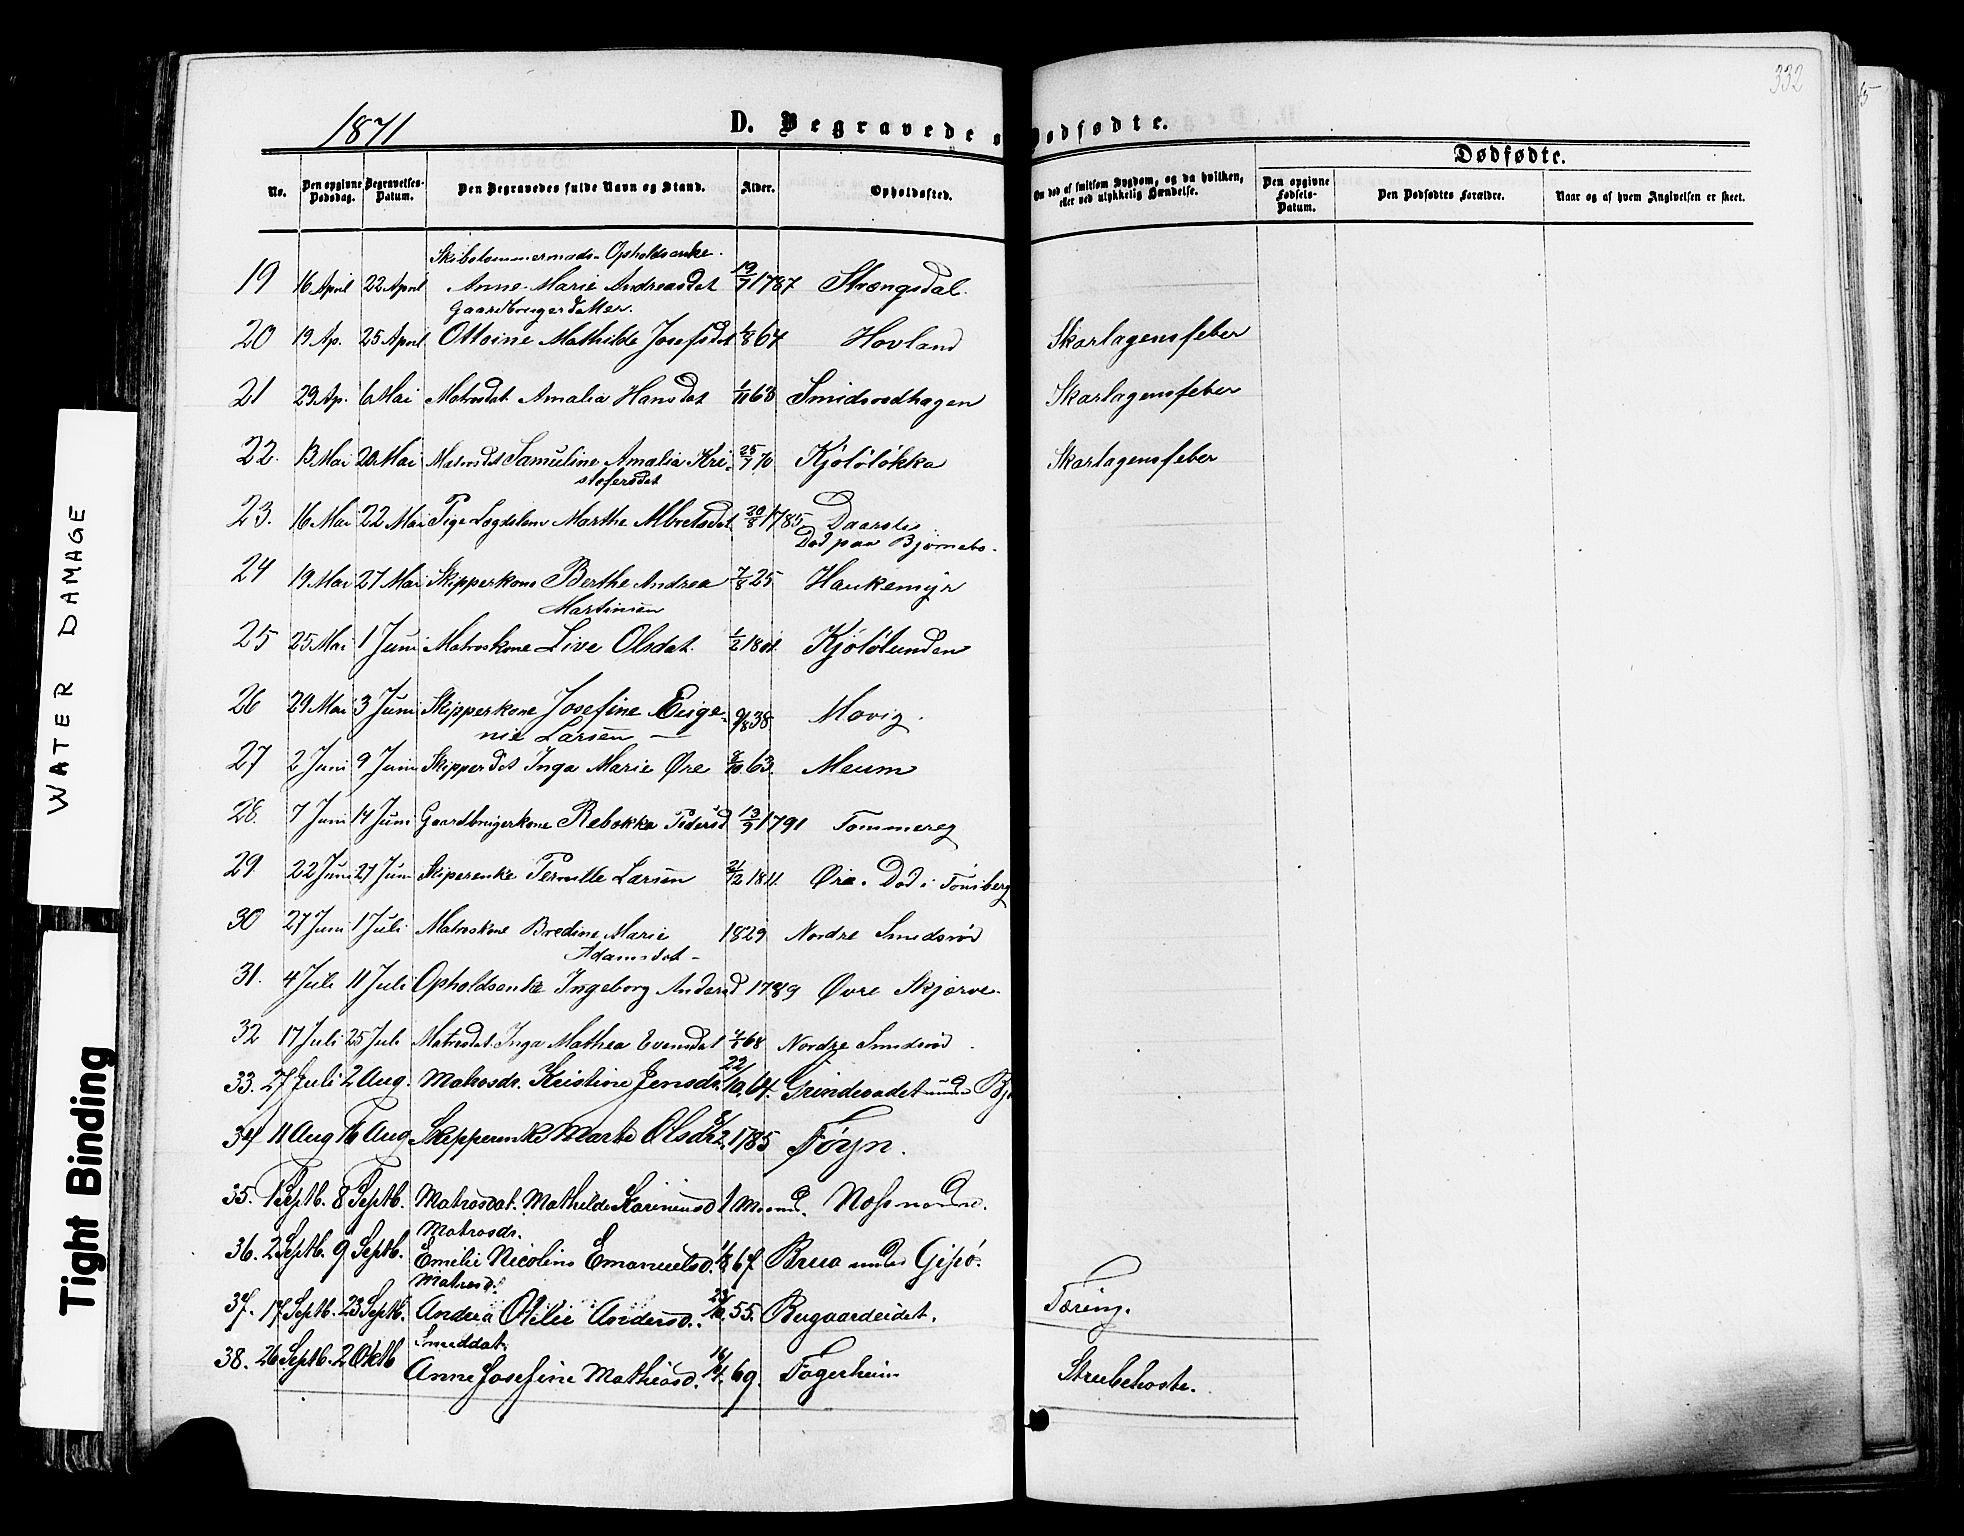 332
1871
D. Begravede o Dødfødte.
Dødfødte.
No.
Den opgivne Dødsdag.
Begravelses-Datum.
Den Begravedes fulde Navn og Stand.
Alder.
Opholdssted.
Om død af smitsom Sygdom, og da hvilken, eller ved ulykkelig Hændelse.
Den opgivne Fødsels-Datum.
Den Dødfødtes Forældre.
Naar og af hvem Angivelsen er skeet.
19 16 April 22 April Anne Marie Andreasdat 19/7 1787
Gaardbrugerdatter.
20 19 Ap. 25 April Ottoine Mathilde Josefsdat 64 Hovland Skarlagensfeber
21 29 Ap. 6 Mai Matrosdat Amalia Hansdat 68 Smidsrodhagen Skarlagensfeber
22. 13 Mai 20 Mai Matrosdt Samuline Amalia Kri- 25/7 70 Kjøløløkka Skarlagensfeber
stofersdat
23. 16 Mai 22 Mai Pige Lægdslem Marthe Albretsdat 20/8 1785
Død paa Bjørnebo.
24 19 Mai 27 Mai Skipperkone Berthe Andrea 7/8 25 Haukemyr
Martinsen
25 25 Mai 1 Juni Matroskone Live Olsdat. 1/2 1801. Kjølølunden
26 29 Mai 3 Juni Skipperkone Josefine Euge- 9/8 38 Movig.
nie Larsen
27 2 Juni 9 Juni Skipperdat Inga Marie Øre 63. Meum
28. 7 Juni 14 Juni Gaardbrugerkone Rebekka Pedersd 13/9 1791 Tommereg
29. 22 Juni 27 Juni Skiperenke Pernille Larsen 1811. Øre. Død i Tønsberg
30 27 Juni 1 Juli Matroskone Bredine Marie 1829 Nordre Smidsrød
Adamsdat
31. 4 Juli 11 Juli Opholdsenke Ingeborg Andersd 1789 Øvre Skjærve.
32 17 Juli 25 Juli Matrosdat. Inga Mathea Evensdat 68 Nordre Smidsrød
33. 27 Juli 2 Aug. Matrosdr. Kristine Jensdr. 22/10 64. under Bj
34 11 Aug 16 Aug Skipperenke Marte Olsdr. 8/12 1785 Føyn.
35. 1 Septb. 8 Septb. Matrosdat. Mathilde 1 Maaned. Næss nordre.
Matrosdr.
36. 2 Septb. 9 Septb. Emilie Nicoline Emanuelsd. 1/8 67 Brua under Gipø.
Matrosd.
37. 17 Septb. 23 Septb. Andrea Otilie Andersd. 23/10 55. Bugaardeidet. Tæring.
Smeddat.
38. 26 Septb. 2 Oktb Anne Josefine Mathiasd. 69. Fagerheim Strubehoste.
WATER DAMAGE
Tight Binding